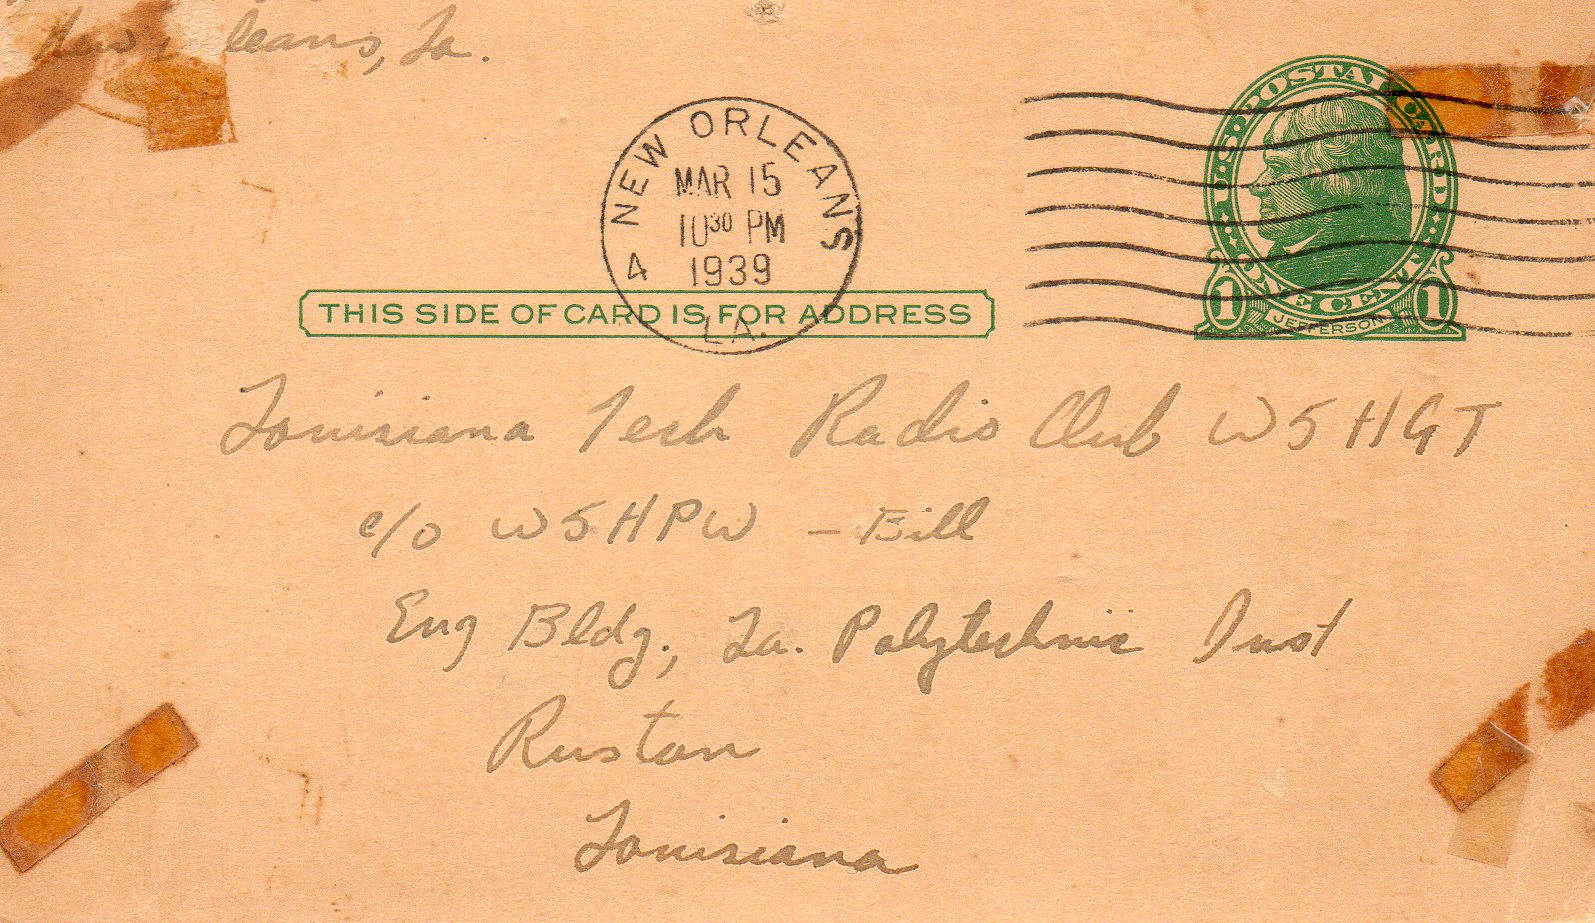 New Orleans, La.
U.S. POSTAL CARD
NEW ORLEANS
MAR 15
10 30 PM
1939
4
LA.
1 ONE CENT 1
JEFFERSON
THIS SIDE OF CARD IS FOR ADDRESS
Louisiana Tech Radio Club W5HGT
c/o W5HPW – Bill
Eng Bldg., La. Polytechnic Inst
Ruston
Louisiana